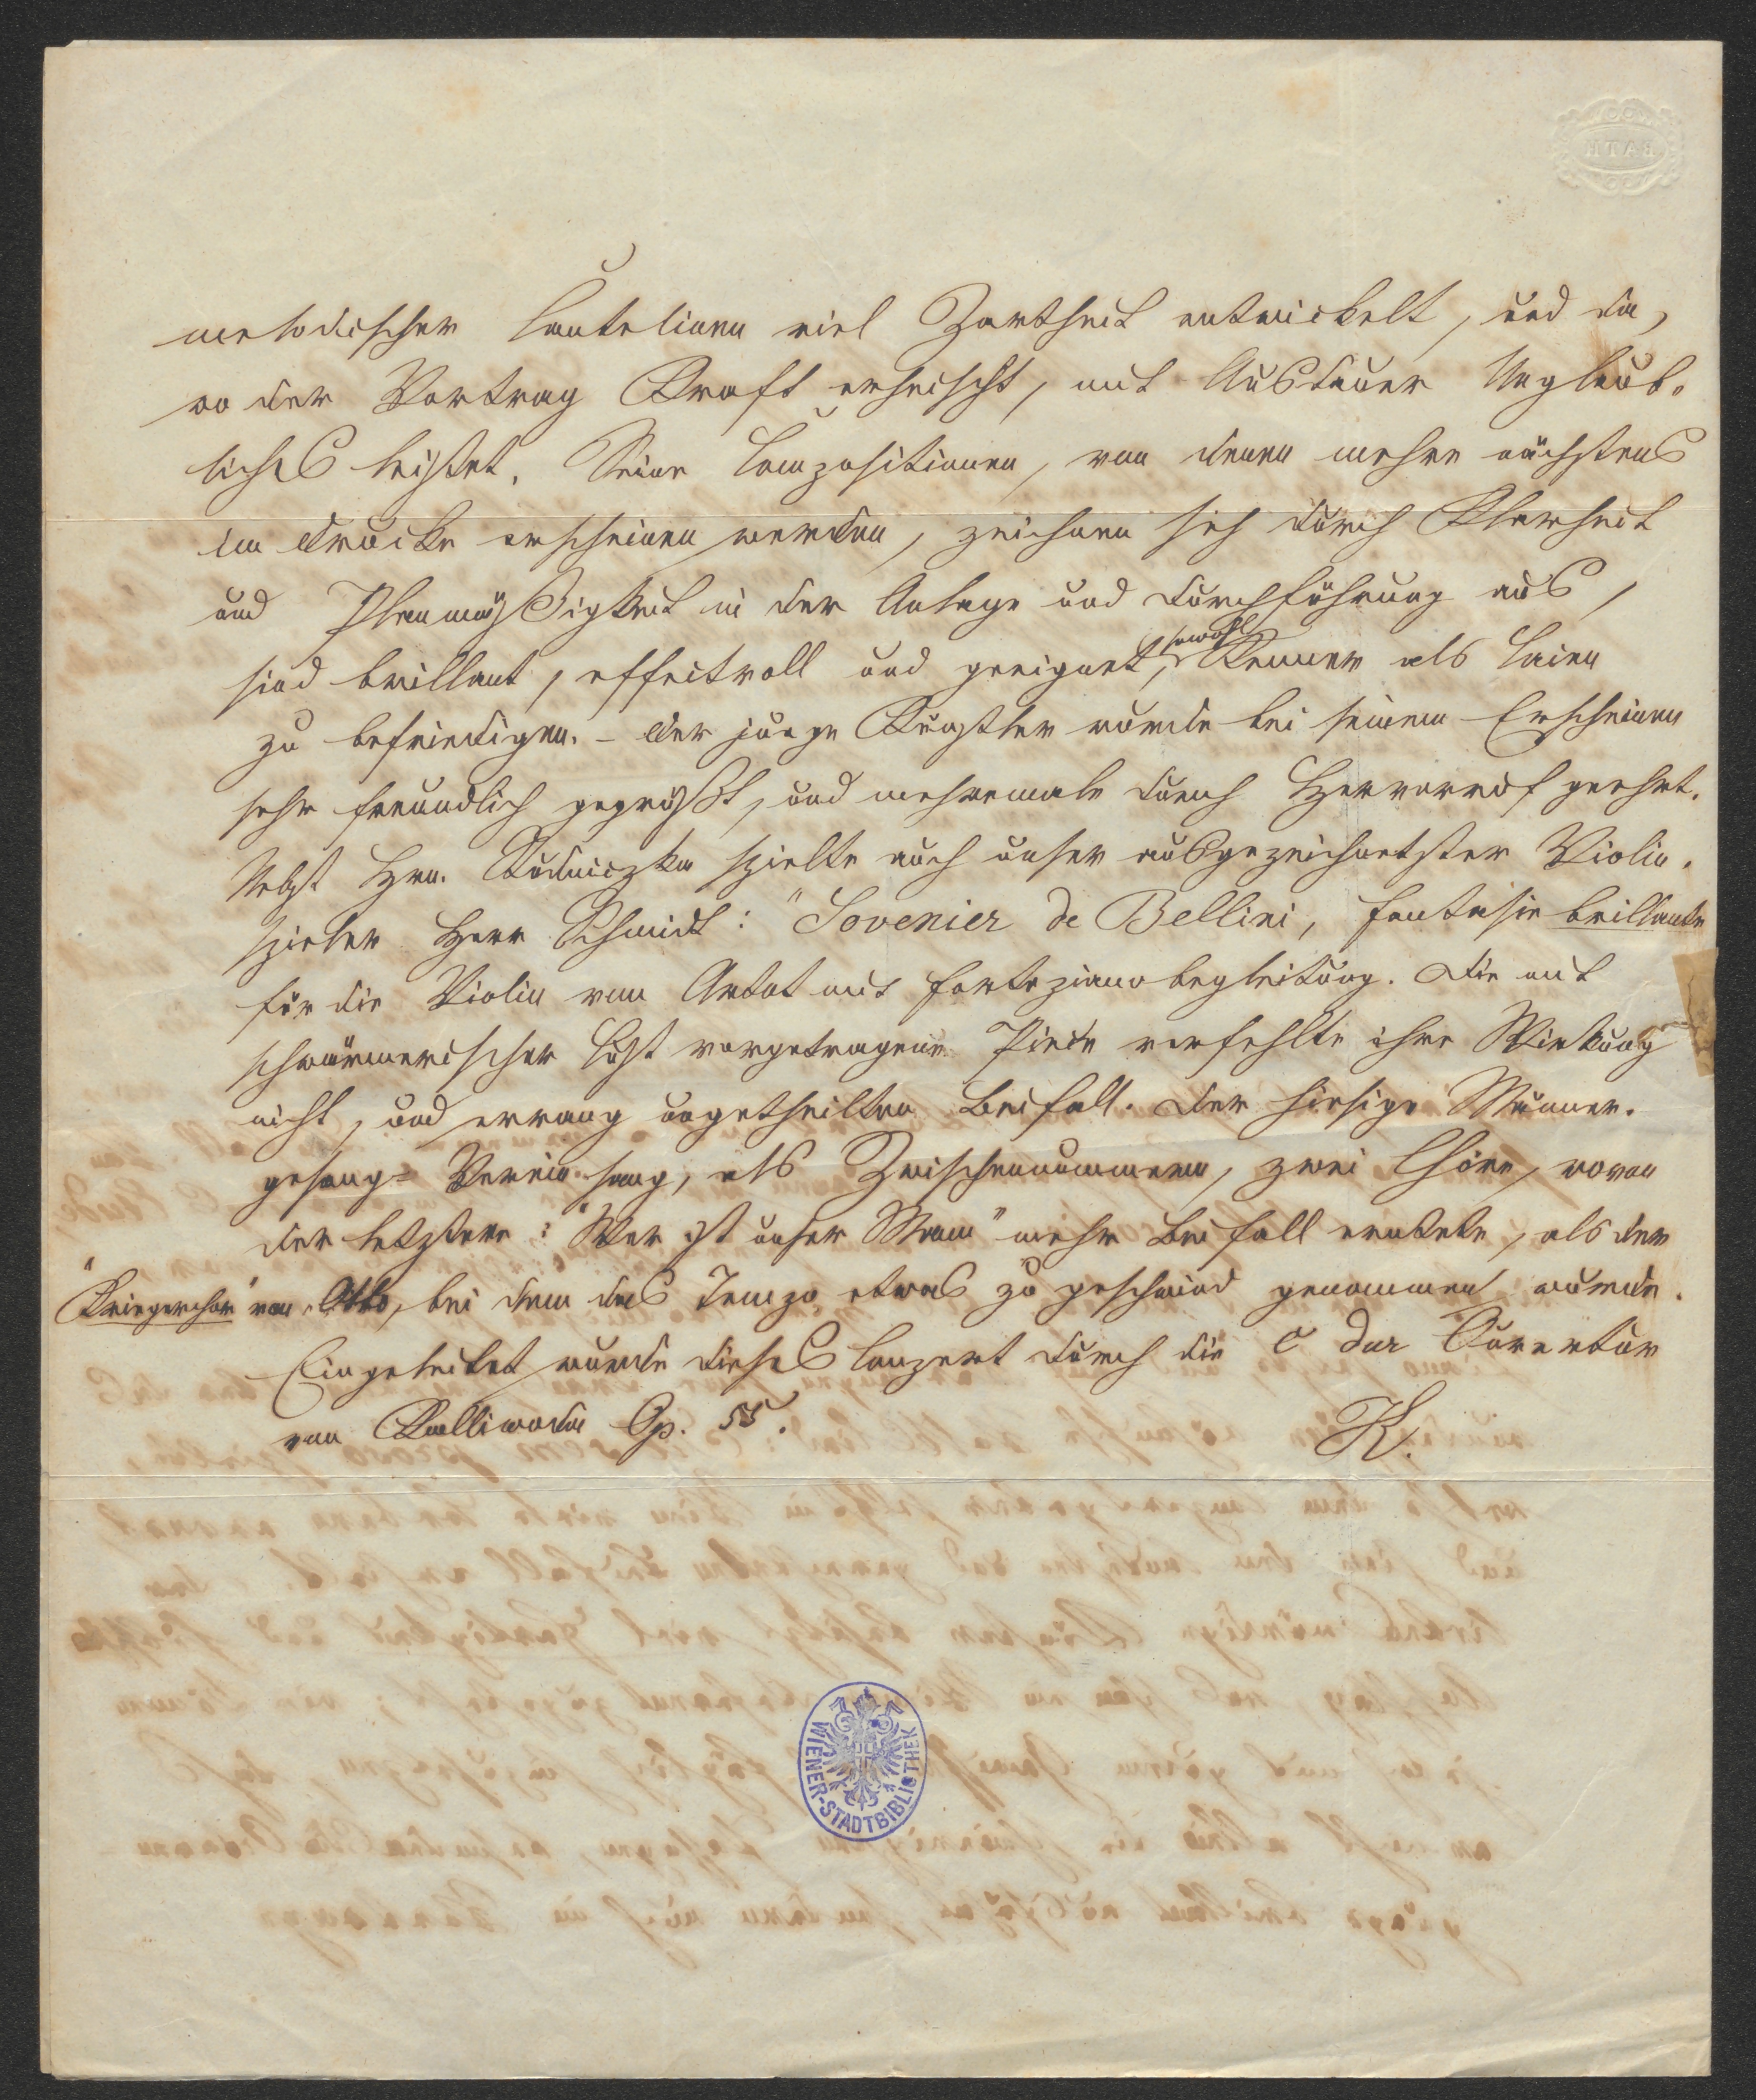 BATH
melodischer Cantelinen viel Zartheit entwickelt, und da,
wo der Vortrag Kraft erheischt, mit Ausdauer Unglaub-
liches leistet. Seine Compositionen, von denen mehre nächstens
im Drucke erscheinen werden, zeichnen sich durch Klarheit
und Planmäßigkeit in der Anlage und Durchführung aus,
sind brillant, effectvoll und geeignet, sowohl Kenner als Laien
zu befriedigen. – Der junge Künstler wurde bei seinem Erscheinen
sehr freundlich gegrüßt, und mehremale durch Hervorruf geehrt.
Nebst Hrn. spielte auch unser ausgezeichnetster Violin-
spieler Herr Schmidt: "Sovenier de Bellini, Fantasie brillante
für die Violin von Artot mit Fortepianobegleitung. Die mit
schwärmerischer Lust vorgetragene Piece verfehlte ihre Wirkung
nicht, und errang ungetheilten Beifall. Der hiesige Männer-
gesang-Verein sang, als Zwischennummern, zwei Chöre, wovon
der letztere: "Wer ist unser Mann" mehr Beifall erntete, als der
"Kriegerchor" von Otto, bei dem das Tempo etwas zu geschwind genommen wurde.
Eingeleitet wurde dieses Conzert durch die C dur Ouvertur
von Kalliwoda Op. 55.
K.
WIENER-STADTBIBLIOTHEK